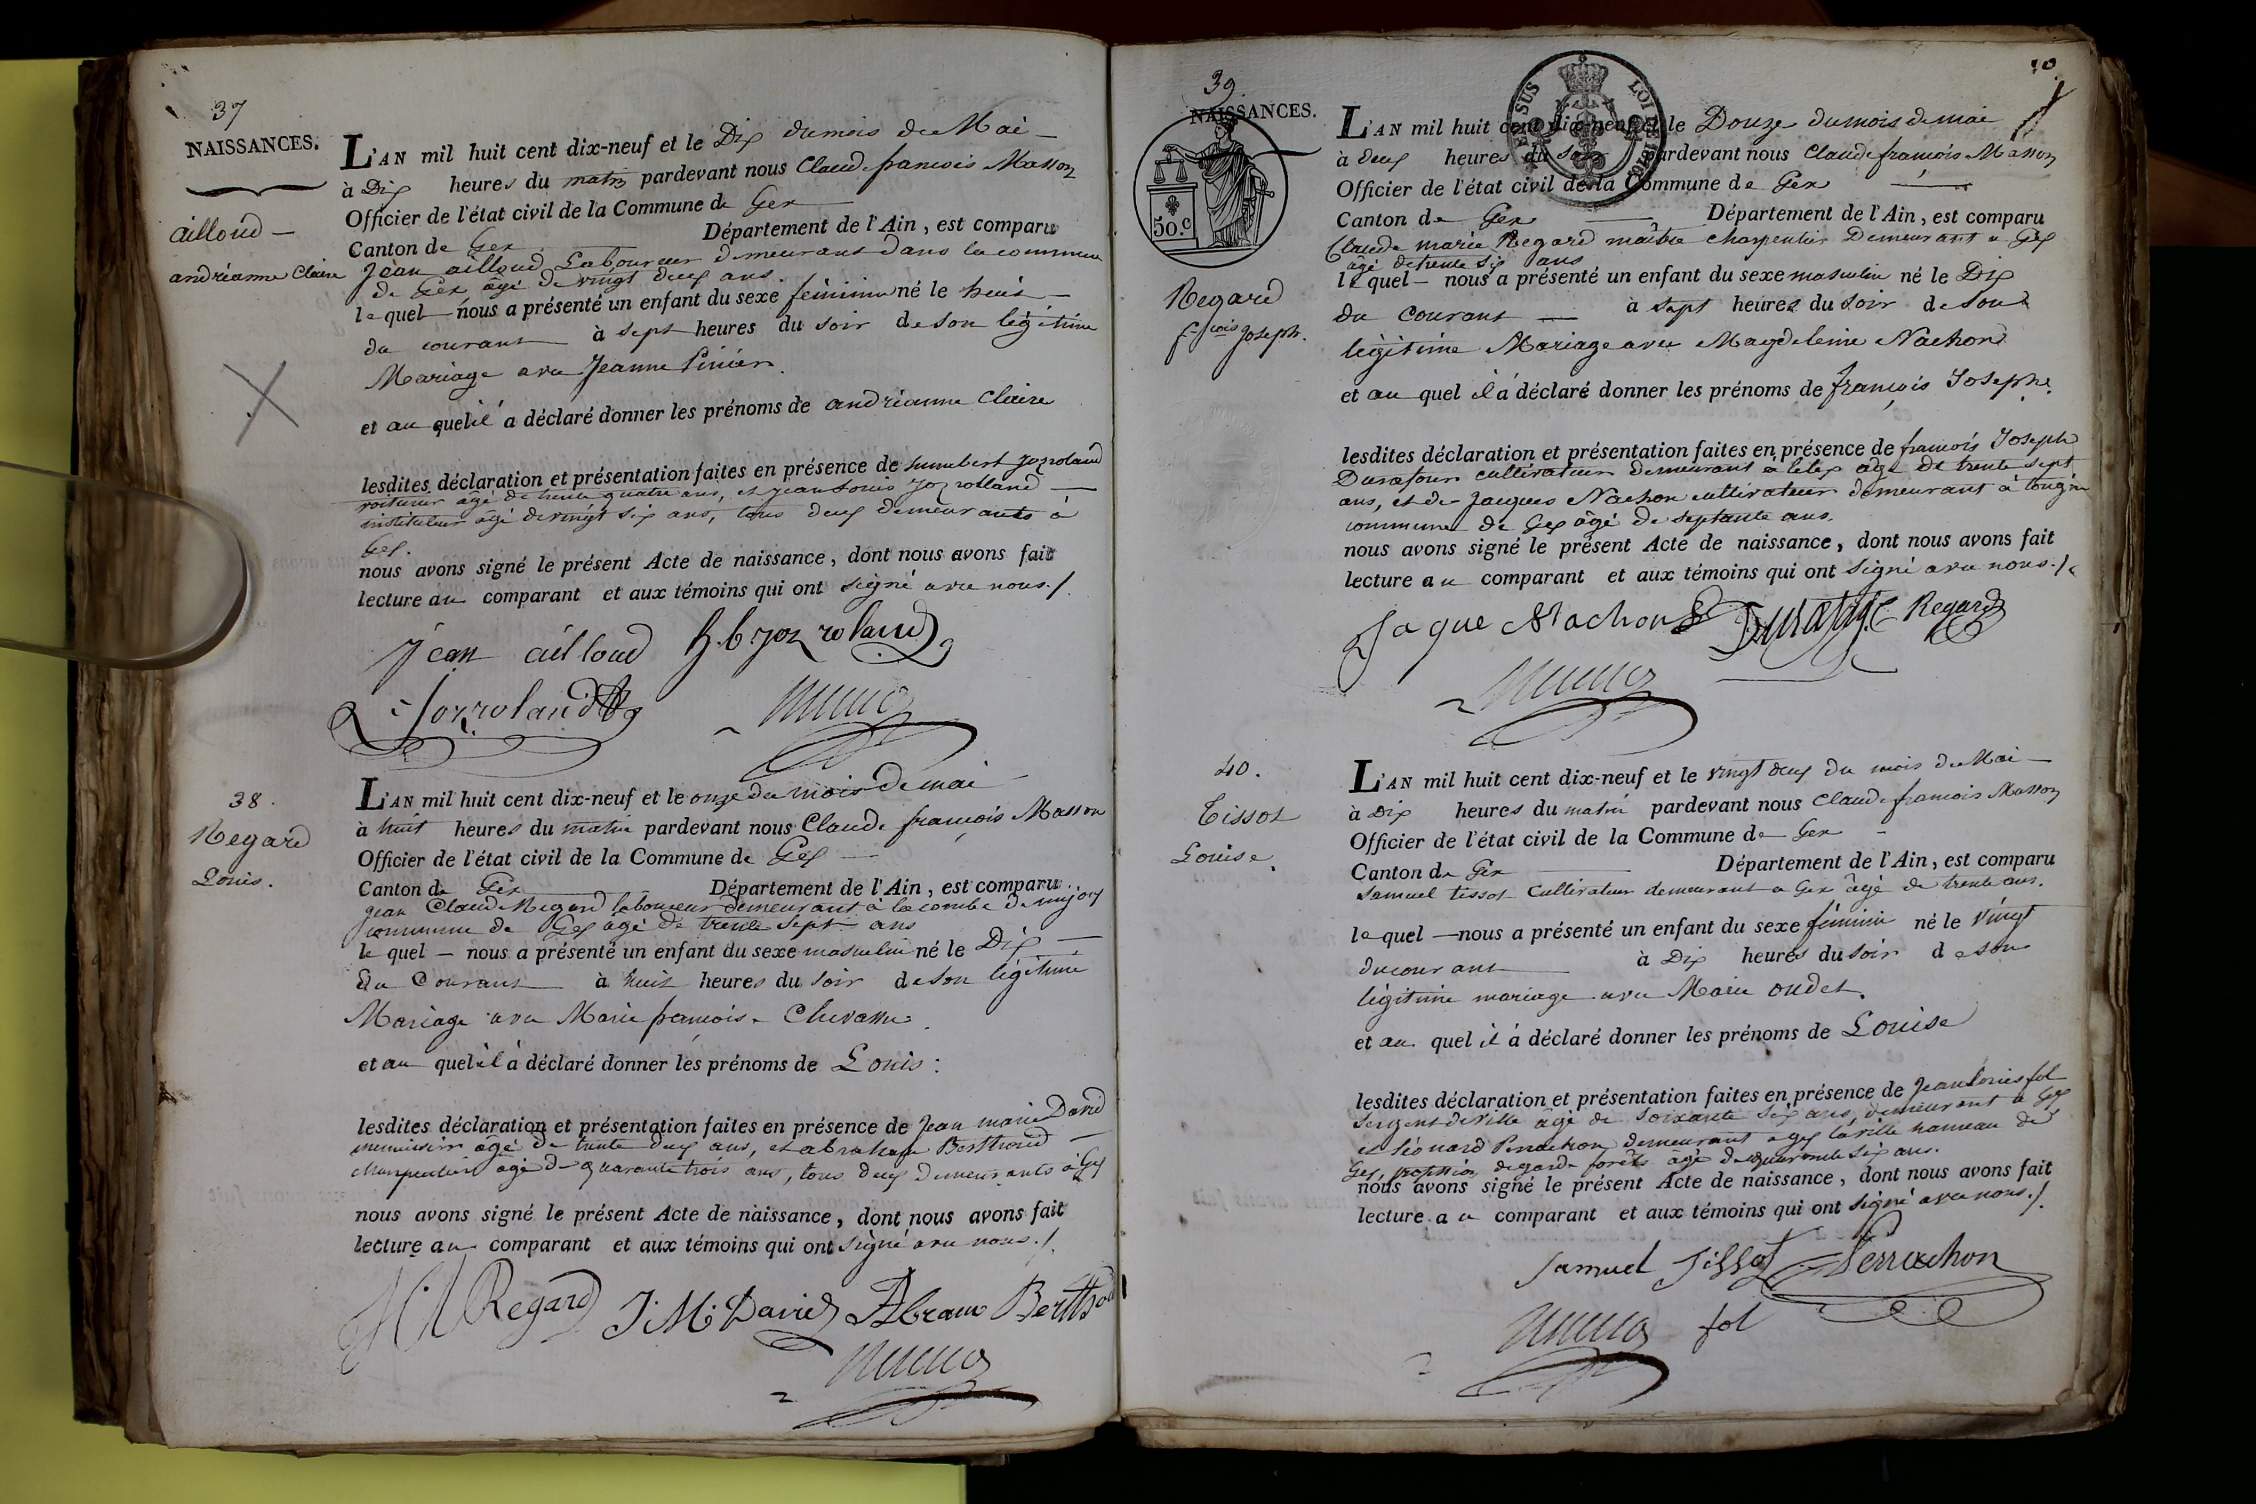 37
NAISSANCES.
ailloud
andréanne Claire
L'AN mil huit cent dix-neuf et le Dix du mois de Mai
à Dix heures du matin pardevant nous Claude françois Masson
Officier de l'état civil de la Commune de Gex
Canton de Gex Département de l'Ain, est comparu
Jean ailloud Laboureur demeurant dans la commune
de Gex âgé de vingt deux ans
le quel nous a présenté un enfant du sexe féminin né le huit
du courant à sept heures du soir de son légitime
Mariage avec Jeanne
et au quel il a déclaré donner les prénoms de andréanne Claire
lesdites déclaration et présentation faites en présence de humbert Jozroland
voiturier âgé de trente quatre ans, et Jean Louis Jozrolland
instituteur âgé de vingt six ans, tous deux demeurants à
Gex.
nous avons signé le présent Acte de naissance, dont nous avons fait
lecture au comparant et aux témoins qui ont signé avec nous./.
jean ailloud h b jozroland
Jozroland
38.
Regard
Louis.
L'AN mil huit cent dix-neuf et le onze du mois de mai
à huit heures du matin pardevant nous Claude françois Masson
Officier de l'état civil de la Commune de Gex
Canton de Gex Département de l'Ain, est comparu
jean Claude Regard laboureur demeurant à la combe de mijoux
commune de Gex âgé de trente sept ans
le quel nous a présenté un enfant du sexe masculin né le Dix
du Courant à huit heures du soir de son légitime
Mariage avec Marie françoise Chevassu
et au quel il à déclaré donner les prénoms de Louis :
lesdites déclaration et présentation faites en présence de Jean marie David
menuisier âgé de trente deux ans, et abraham Berthoud
charpentier âgé de quarante trois ans, tous deux demeurants à Gex
nous avons signé le présent Acte de naissance, dont nous avons fait
lecture au comparant et aux témoins qui ont signé avec nous./.
Regard J. M. David Abram Berthoud
10.
39
NAISSANCES.
50.c
EN SUS LOI DE 1816
Regard
f.çois Joseph.
L'AN mil huit cent dix-neuf et le Douze du mois de mai
à deux heures du soir pardevant nous Claude françois Masson
Officier de l'état civil de la Commune de Gex
Canton de Gex Département de l'Ain, est comparu
Claude marie Regard maître charpentier Demeurant a Gex
âgé de trente six ans
le quel nous a présenté un enfant du sexe masculin né le Dix
du courant à sept heures du soir de son
légitime Mariage avec Magdeleine Nachon
et au quel il a déclaré donner les prénoms de françois Joseph.
lesdites déclaration et présentation faites en présence de françois Joseph
Durafour cultivateur demeurant à lelex âgé de trente sept
ans, et de Jacques Nachon cultivateur demeurant à tougin
commune de Gex âgé de septante ans.
nous avons signé le présent Acte de naissance, dont nous avons fait
lecture au comparant et aux témoins qui ont signé avec nous./.
Jaque Nachon Regard
40.
Tissot
Louise.
L'AN mil huit cent dix-neuf et le vingt deux du mois de Mai
à Dix heures du matin pardevant nous Claude françois Masson
Officier de l'état civil de la Commune de Gex
Canton de Gex Département de l'Ain, est comparu
Samuel tissot Cultivateur demeurant a Gex âgé de trente ans.
le quel nous a présenté un enfant du sexe féminin né le Vingt
du courant à Dix heures du soir de son
légitime mariage avec Marie oudet.
et au quel il à déclaré donner les prénoms de Louise
lesdites déclaration et présentation faites en présence de Jean Louis fol
sergent de ville âgé de soixante six ans, demeurant a Gex
et Léonard Perrachon demeurant a gex la ville hameau de
Gex, profession de garde forêts âgé de quarante six ans.
nous avons signé le présent Acte de naissance, dont nous avons fait
lecture au comparant et aux témoins qui ont signé avec nous./.
Samuel Tissot Perrachon
fol